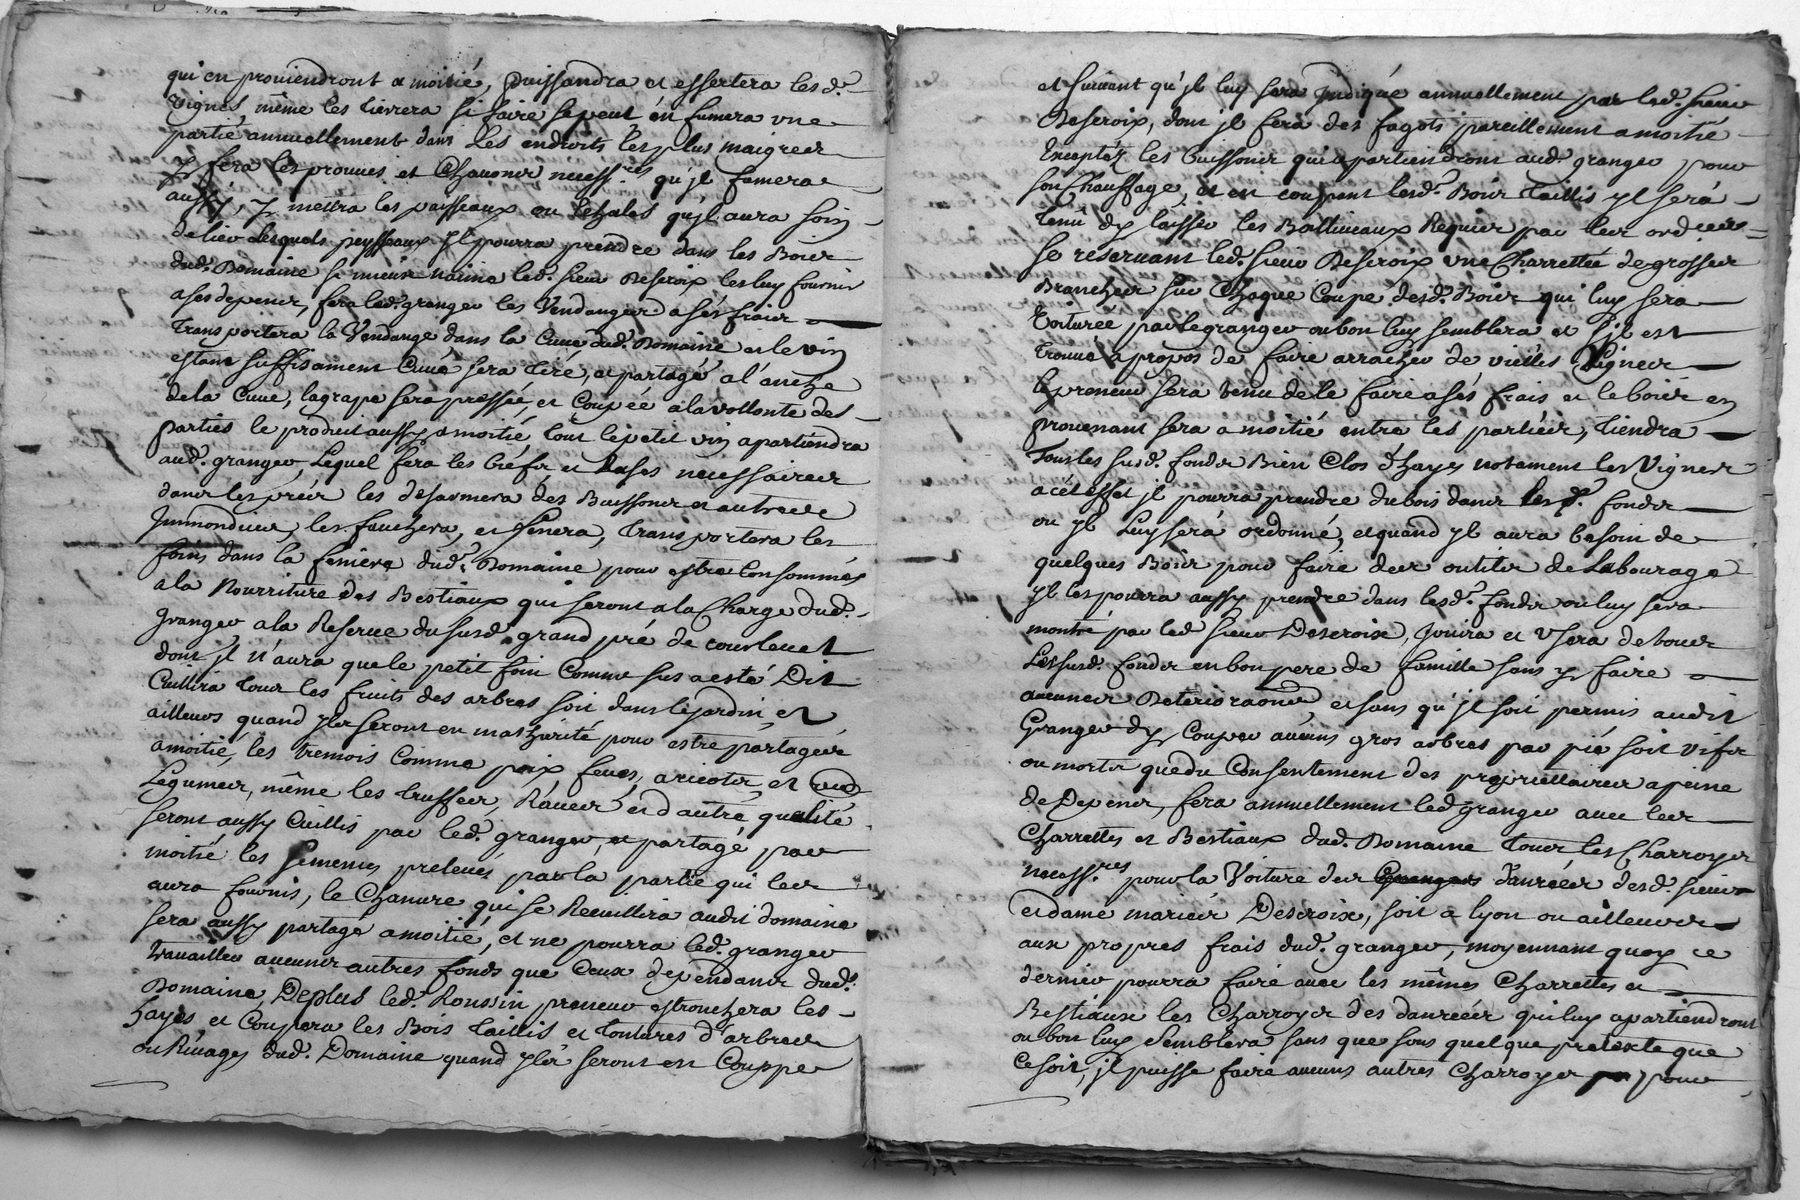 qui en proviendront a moitié, puissandra et essertera les d.
vignes même les tierera si faire se peut en fumera une
partie annuellement dans les endroits les plus maigres
y fera les prouvies et Chavones necess.res qu'jl fumera
aussy, y mettra les paisseaux ou Echalas qu'jl aura soin
de lier Lesquels peysseaux jl pourra prendre dans les Bois
dud. Domaine sy mieux n'aime led. sieur Descroix les luy fournir
a ses depens, fera led. granger les Vendanges a sés frais
Transportera la Vendange dans la Cuve dud. Domaine et le vin
estant suffisament Cuvé sera Tiré, et partagé a l'anche
de la Cuve, la grape sera pressée, et Coupée a la vollonte des
parties le produit aussy a moitié, tout le petit vin apartiendra
aud. granger, Lequel fera les biefs et Rases necessaires
dans les prés les desarmera des Buissons et autres
Jmmondices, les fauchera, et fenera, Transportera les
foins dans la feniere dud. Domaine pour estre Consommés
a la Nourriture des Bestiaux qui seront a la Charge dud.
granger a la Reserve du susd. grand pré de courlevet
dont jl n'aura que le petit foin Comme sus a esté Dit
Cuillira Tous les fruits des arbres soit dans le jardin et
ailleurs quand yls seront en mathurité pour estre partagés
a moitié, les tremois Comme poix feves, aricots, et
Legumes, même les truffes, Raves et d'autre qualité
seront aussy Cuillis par led. granger, et partagé par
moitié les semences prelevés par la partie qui les
aura fournis, le Chanvre qui se Recuillira audit domaine
sera aussy partagé a moitié, et ne pourra led. granger
travailler aucuns autres fonds que Ceux dependans dud.
Domaine, De plus led. Roussin preneur estrouchera les
hayes et Coupera les Bois Taillis et Tontures d'arbres
ou Rivages dud. Domaine quand yls seront en Couppe
et suivant qu'jl luy sera jndiqué annuellement par led. sieur
Descroix, dont jl fera des fagots pareillement a moitié
Exceptéz les buissons qui apartiendront aud. granger pour
son Chauffage, et en coupant lesd. Bois Taillis yl sera
tenu d'y laisser les Balliveaux Requis par les ord.ces
se reservant led. sieur Descroix une Charrettée de grosses
Branches sur Chaque Coupe desd. Bois qui luy sera
Voiturée par le granger ou bon luy semblera et s'jl est
trouvé apropos de faire arracher de vielles Vignes
le preneur sera tenu de le faire a sés frais et le bois en
provenant sera a moitié entre les parties, Tiendra
Tous les susd. fonds Bien Clos d'hayes notament les Vignes
a cét effet jl pourra prendre du bois dans les d. fonds
ou yl Luy sera ordonné, et quand yl aura besoin de
quelques Bois pour faire des outils de Labourage
yl les pourra aussy prendre dans lesd. fonds ou luy sera
montré par led. sieur Descroix, Jouira et Usera de tous
Les susd. fonds en bon pere de famille sans y faire
aucunes Deterioraons et sans qu'jl soit permis audit
Granger d'y Couper aucuns gros arbres par pié soit vifs
ou morts que du Consentement des proprietaires a peine
de Depens, fera annuellement led. granger avec les
Charrettes et Bestiaux dud. Domaine Tous les Charroyes
necess.res pour la Voiture des danrées desd. sieur
et dame mariés Descroix, soit a lyon ou ailleurs
aux propres frais dud. granger, moyennant quoy ce
dernier pourra faire avec les mêmes Charrettes et
Bestiaux les Charroyes des danrées qui luy apartiendront
ou bon luy Semblera sans que sous quelque pretexte que
Ce soit, jl puisse faire aucuns autres Charroyes pour